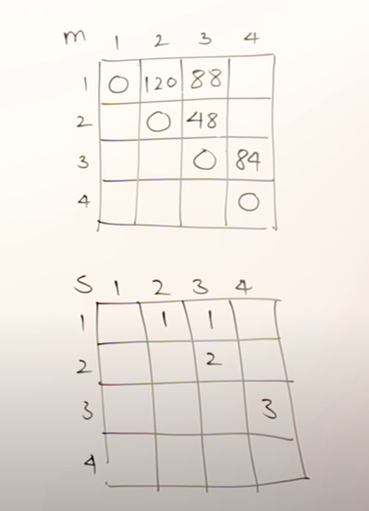 m 1 2 3 4
1 0 120 88
2 0 48
3 0 84
4 0
S 1 2 3 4
1 1 1
2 2
3 3
4